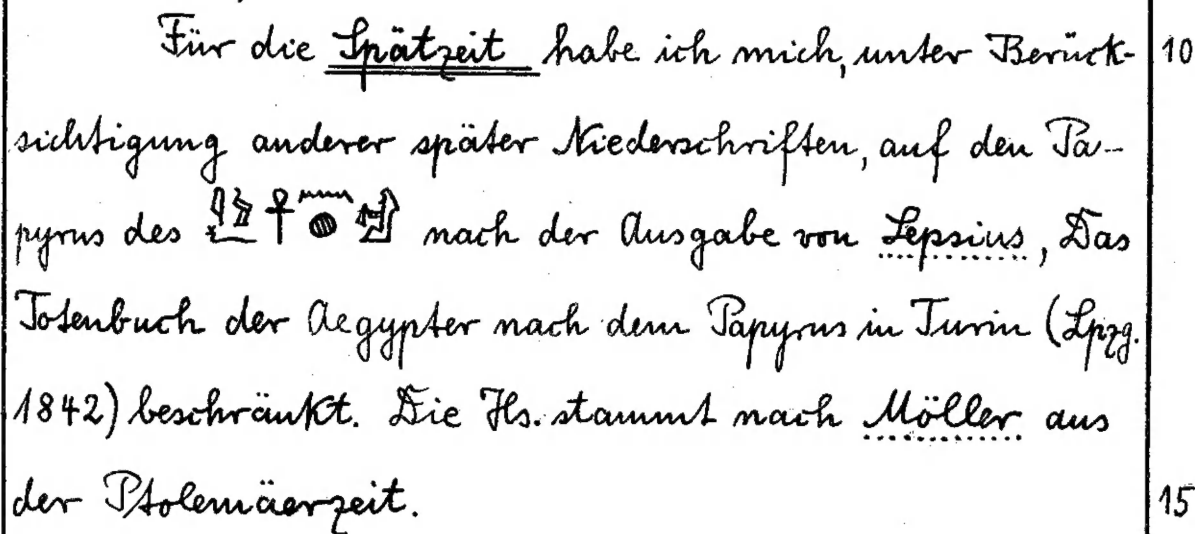 Für die Spätzeit habe ich mich, unter Berück- 10
sichtigung anderer später Niederschriften, auf den Pa-
pyrus des nach der Ausgabe von Lepsius, Das
Totenbuch der Aegypter nach dem Papyrus in Turin (Lpzg.
1842) beschränkt. Die Hs. stammt nach Möller aus
der Ptolemäerzeit. 15